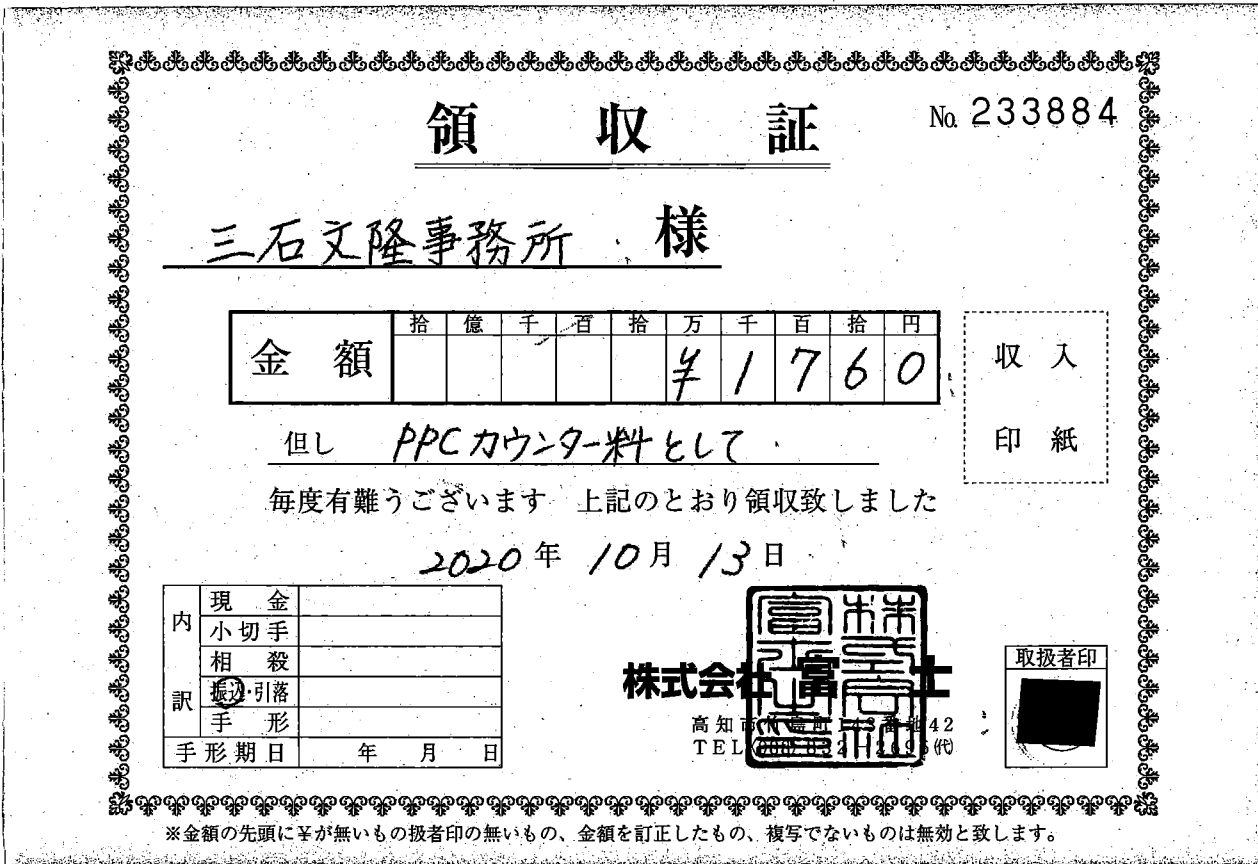 領収証
No. 233884
三石文隆事務所 様
金額
拾 億 千 百 拾 万 千 百 拾 円
¥ 1 7 6 0
収入
印紙
但し PPCカウンター料として
毎度有難うございます 上記のとおり領収致しました
2020年 10月 13日
内訳
現金
小切手
相殺
振込・引落
手形
手形期日 年 月 日
株式会社 富士
高知市
番地42
TEL
(代)
取扱者印
※金額の先頭に¥が無いもの扱者印の無いもの、金額を訂正したもの、複写でないものは無効と致します。